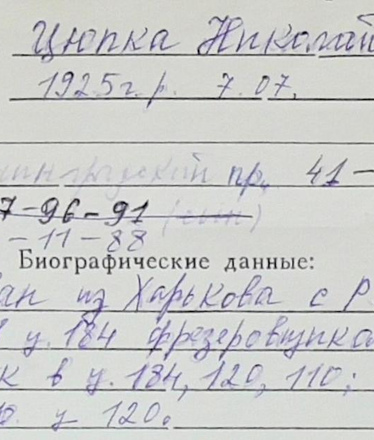 Цюпка Николай
1925г.р. 7.07.
пр. 41-
7-96-91 (сын)
-11-88
Биографические данные:
ан из Харькова с Р
ц. 184 фрезеровщика
к в ц. 184, 120, 110;
ц 120.